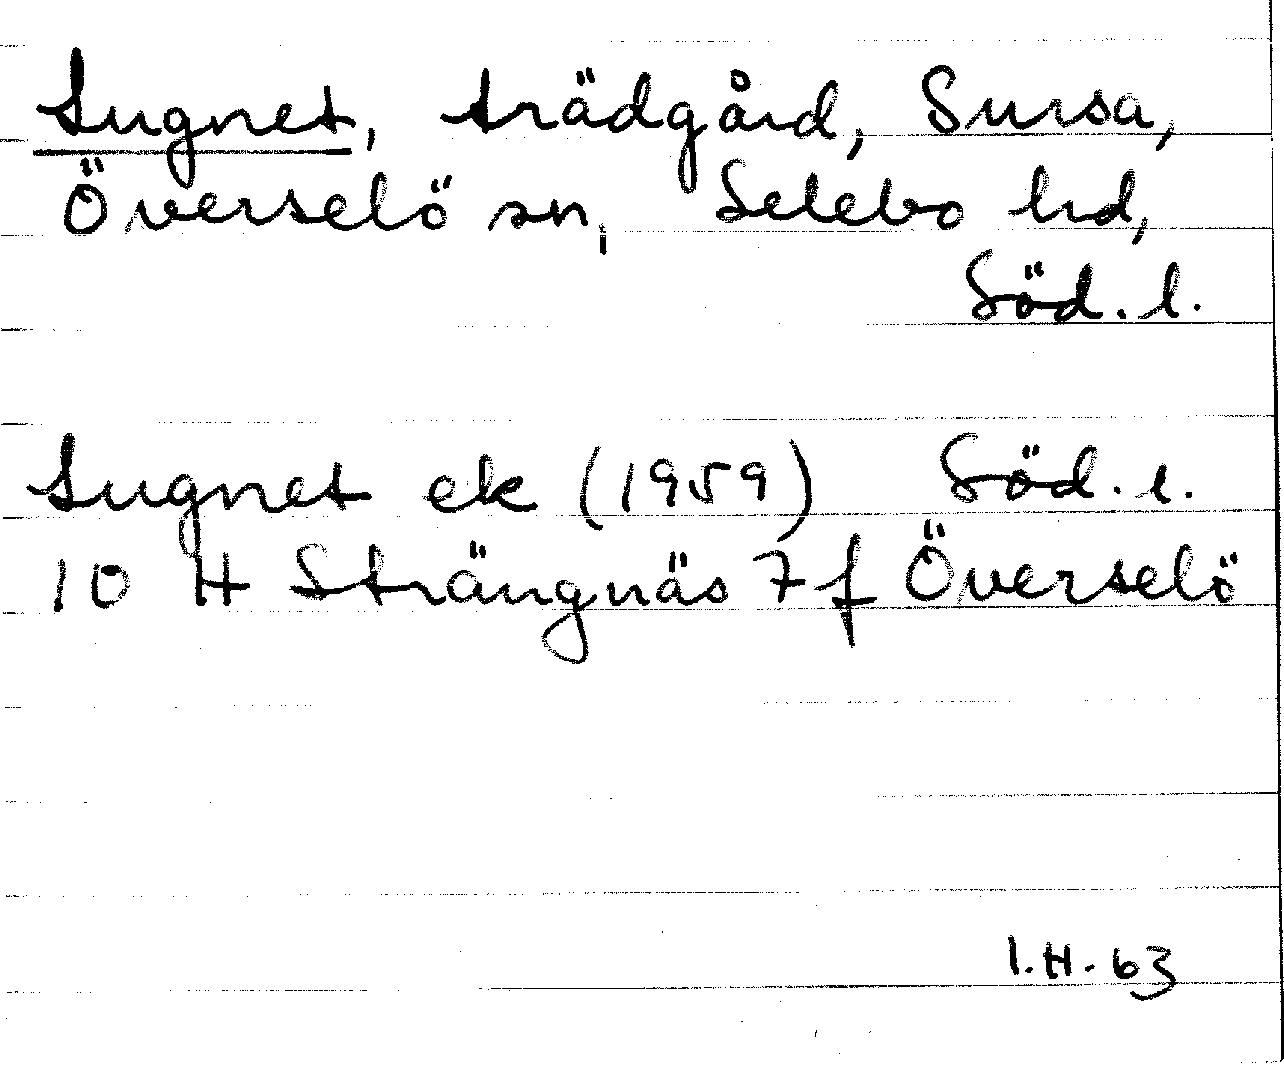 Lugnet, trädgård, Sursa,
Överselö sn, Selebo hd,
Söd. l.
Lugnet ek (1959) Söd. l.
10 H Strängnäs 7 f Överselö
I.H. 63